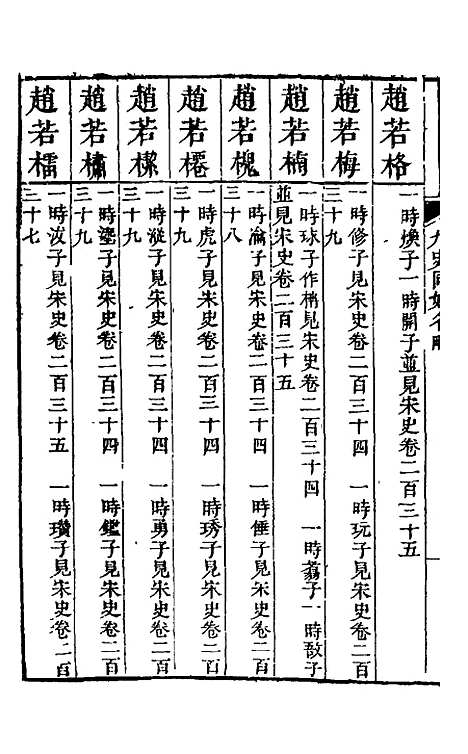 趙若格
一時煥子一時開子並見宋史卷二百三十五
趙若梅
一時修子見宋史卷二百三十四 一時玩子見宋史卷二百
三十九
趙若楠
一時球子作梢見宋史卷二百三十四 一時蕘子一時㪚子
並見宋史卷二百三十五
趙若槐
一時瀹子見宋史卷二百三十四 一時倕子見宋史卷二百
三十八
趙若櫏
一時虎子見宋史卷二百三十四 一時琇子見宋史卷二百
三十九
趙若樑
一時漎子見宋史卷二百三十四 一時勇子見宋史卷二百
三十九
趙若橚
一時子見宋史卷二百三十四 一時鑑子見宋史卷二百
三十九
趙若檽
一時泼子見宋史卷二百三十五 一時瓚子見宋史卷二百
三十七
九史同姓名略